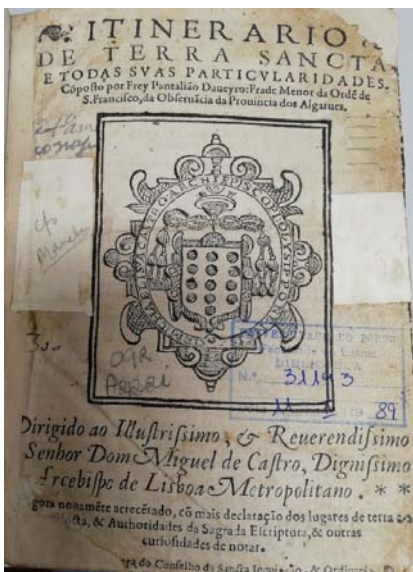 ITINERARIO
DE TERRA SANCTA
E TODAS SVAS PARTICVLARIDADES.
Cõposto por Frey Pantalião Daueyro: Frade Menor da Ordẽ de
S. Francisco, da Obseruãcia da Prouincia dos Algarues.
c/o
09R
N.º 31193
11 89
Dirigido ao Illustrissimo, & Reuerendissimo
Senhor Dom Miguel de Castro, Dignissimo
Arcebispo de Lisboa Metropolitano. * *
gora nouamẽte acrecẽtado, cõ mais declaração dos lugares de terra
& Authoridades da Sagrada Escriptura, & outras
curiosidades de notar.
do Conselho da Sancta Inquisição, & Ordinario